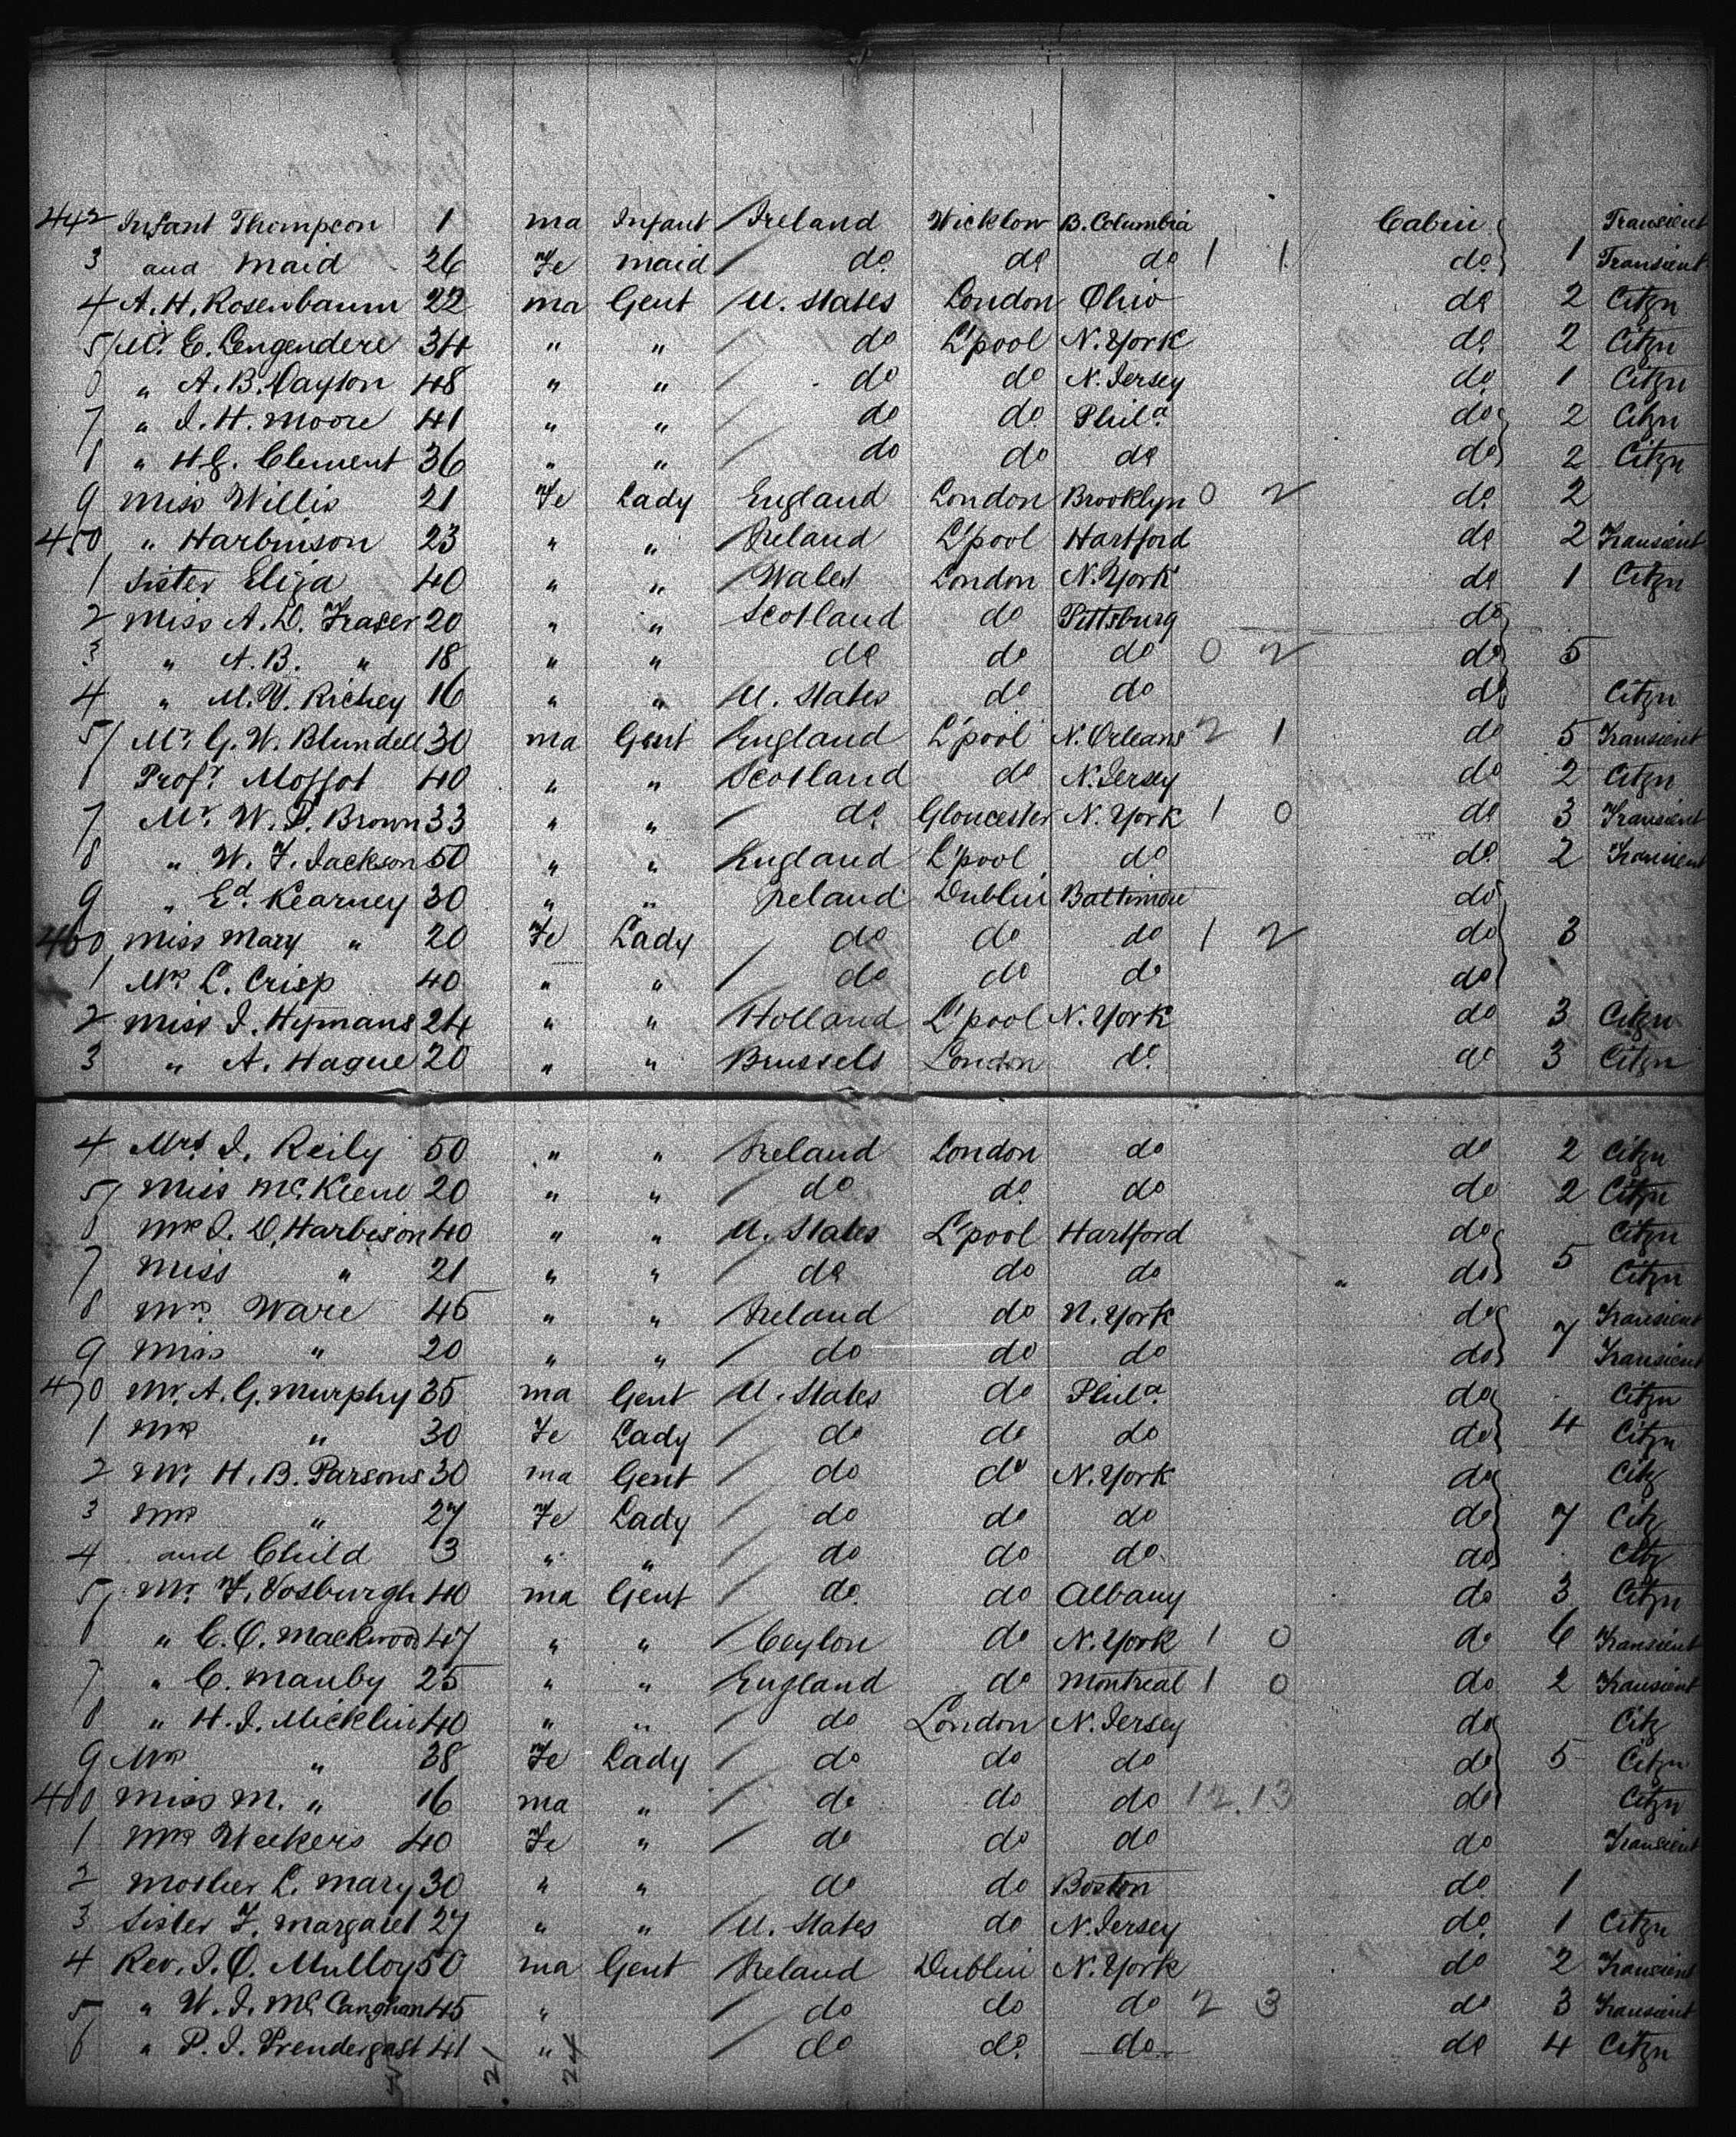 442 Infant Thompson 1 ma Infant Ireland Wicklow B. Columbia Cabin Transient
3 and maid 26 Fe maid do do do 1 1 do 1 Transient
4 A. H. Rosenbaum 22 ma Gent U. States London Ohio do 2 Citzn
5 Mr. E. Lengendere 34 " " do L'pool N. York do 2 Citzn
6 " A. B. Dayton 48 " " do do N. Jersey do 1 Citzn
7 " J. H. Moore 41 " " do do Phila do 2 Citzn
8 " H. G. Clement 36 " " do do do do 2 Citzn
9 Miss Willis 21 Fe Lady England London Brooklyn 0 2 do 2
450 " Harbinson 23 " " Ireland L'pool Hartford do 2 Transient
1 Sister Eliza 40 " " Wales London N. York do 1 Citzn
2 Miss A. D. Fraser 20 " " Scotland do Pittsburg do
3 " A. B. " 18 " " do do do 0 2 do 5
4 " M. Y. Richey 16 " " U. States do do do Citzn
5 Mr. G. W. Blundell 30 ma Gent England L'pool N. Orleans 2 1 do 5 Transient
6 Profr. Moffot 40 " " Scotland do N. Jersey do 2 Citzn
7 Mr. W. P. Brown 33 " " do Gloucester N. York 1 0 do 3 Transient
8 " W. F. Jackson 50 " " England L'pool do do 2 Transient
9 " Ed. Kearney 30 " " Ireland Dublin Baltimore do
460 Miss Mary " 20 Fe Lady do do do 1 2 do 3
1 Mrs L. Crisp 40 " " do do do do
2 Miss J. Hymans 24 " " Holland L'pool N. York do 3 Citzn
3 " A. Hague 20 " " Brussels London do do 3 Citzn
4 Mrs. J. Reily 50 " " Ireland London do do 2 Citzn
5 Miss McKeene 20 " " do do do do 2 Citzn
6 Mrs J. D. Harbison 40 " " U. States L'pool Hartford do Citzn
7 Miss " 21 " " do do do do 5 Citzn
8 Mrs. Ware 45 " " Ireland do N. York do Transient
9 Miss " 20 " " do do do do 7 Transient
470 Mr. A. G. Murphy 35 ma Gent U. States do Phila do Citzn
1 Mrs " 30 Fe Lady do do do do 4 Citzn
2 Mr. H. B. Parsons 30 ma Gent do do N. York do Citz
3 Mrs " 27 Fe Lady do do do do 7 Citz
4 and Child 3 " " do do do do Citz
5 Mr. F. Vosburgh 40 ma Gent do do Albany do 3 Citzn
6 " C. O. Mackwood 47 " " Ceylon do N. York 1 0 do 6 Transient
7 " C. Manby 25 " " England do Montreal 1 0 do 2 Transient
8 " H. J. Micklin 40 " " do London N. Jersey do Citz
9 Mrs " 38 Fe Lady do do do do 5 Citzn
480 Miss M. " 16 ma " do do do 12.13 do Citzn
1 Mrs Weekers 40 Fe " do do do do Transient
2 Mother L. Mary 30 " " do do Boston do 1
3 Sister F. Margaret 27 " " U. States do N. Jersey do 1 Citzn
4 Rev. J. O. Mulloy 50 ma Gent Ireland Dublin N. York do 2 Transient
5 " W. J. McCanghan 45 " do do do 2 3 do 3 Transient
6 " P. J. Prendergast 41 " do do do do 4 Citzn
21 24